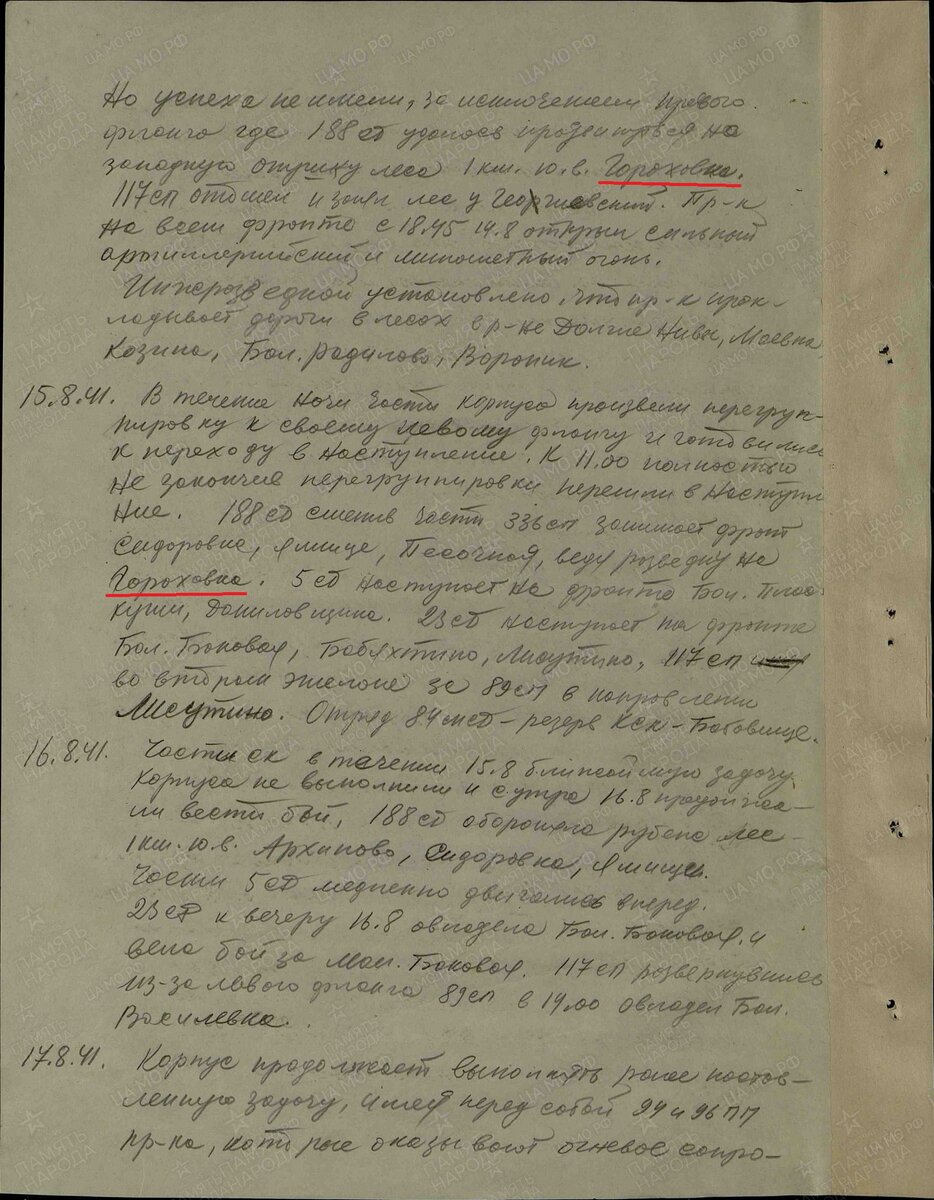 Но успеха не имели, за исключением правого
фланга где 188 сд удалось продвинуться на
западную опушку леса 1 км. ю.в. Гороховка.
117 сп отошел и занял лес у Георгиевский. Пр-к
на всем фронте с 18.45 14.8 открыл сильный
артиллерийский и минометный огонь.
Инжразведкой установлено, что пр-к прок-
ладывает дороги в лесах в р-не Долгие Нивы, Маевка
Козина, Бол. Радилово, Вороник.
15.8.41. В течение ночи части корпуса произвели перегруп-
пировку к своему левому флангу и готовились
к переходу в наступление. К 11.00 полностью
не закончив перегруппировки перешли в наступле
ние. 188 сд сменив части 336 сп занимает фронт
Сидоровка, Ямище, Песочная, ведя разведку на
Гороховка. 5 сд наступает на фронте Бол.
Даниловщина. 23 сд наступает на фронте
Бол. Боковая, Бабяхтино, Лисутино, 117 сп
во втором эшелоне за 89 сп в направлении
Лисутино. Отряд 84 мсд – резерв КСК – Батовище.
16.8.41. Части ск в течении 15.8 ближайшую задачу
корпуса не выполнили и с утра 16.8 продолжа-
ли вести бой, 188 сд обороняла рубеж лес –
1 км. ю.в. Архипово, Сидоровка, Ямище.
Части 5 сд медленно двигались вперед.
23 сд к вечеру 16.8 овладела Бол. Боковая и
вела бой за Мал. Боковая. 117 сп развернувшись
из-за левого фланга 89 сп в 14.00 овладел Бол.
Василевка.
17.8.41. Корпус продолжает выполнять ранее постав-
ленную задачу, имея перед собой 94 и 96 ПП
пр-ка, которые оказывают огневое сопро-